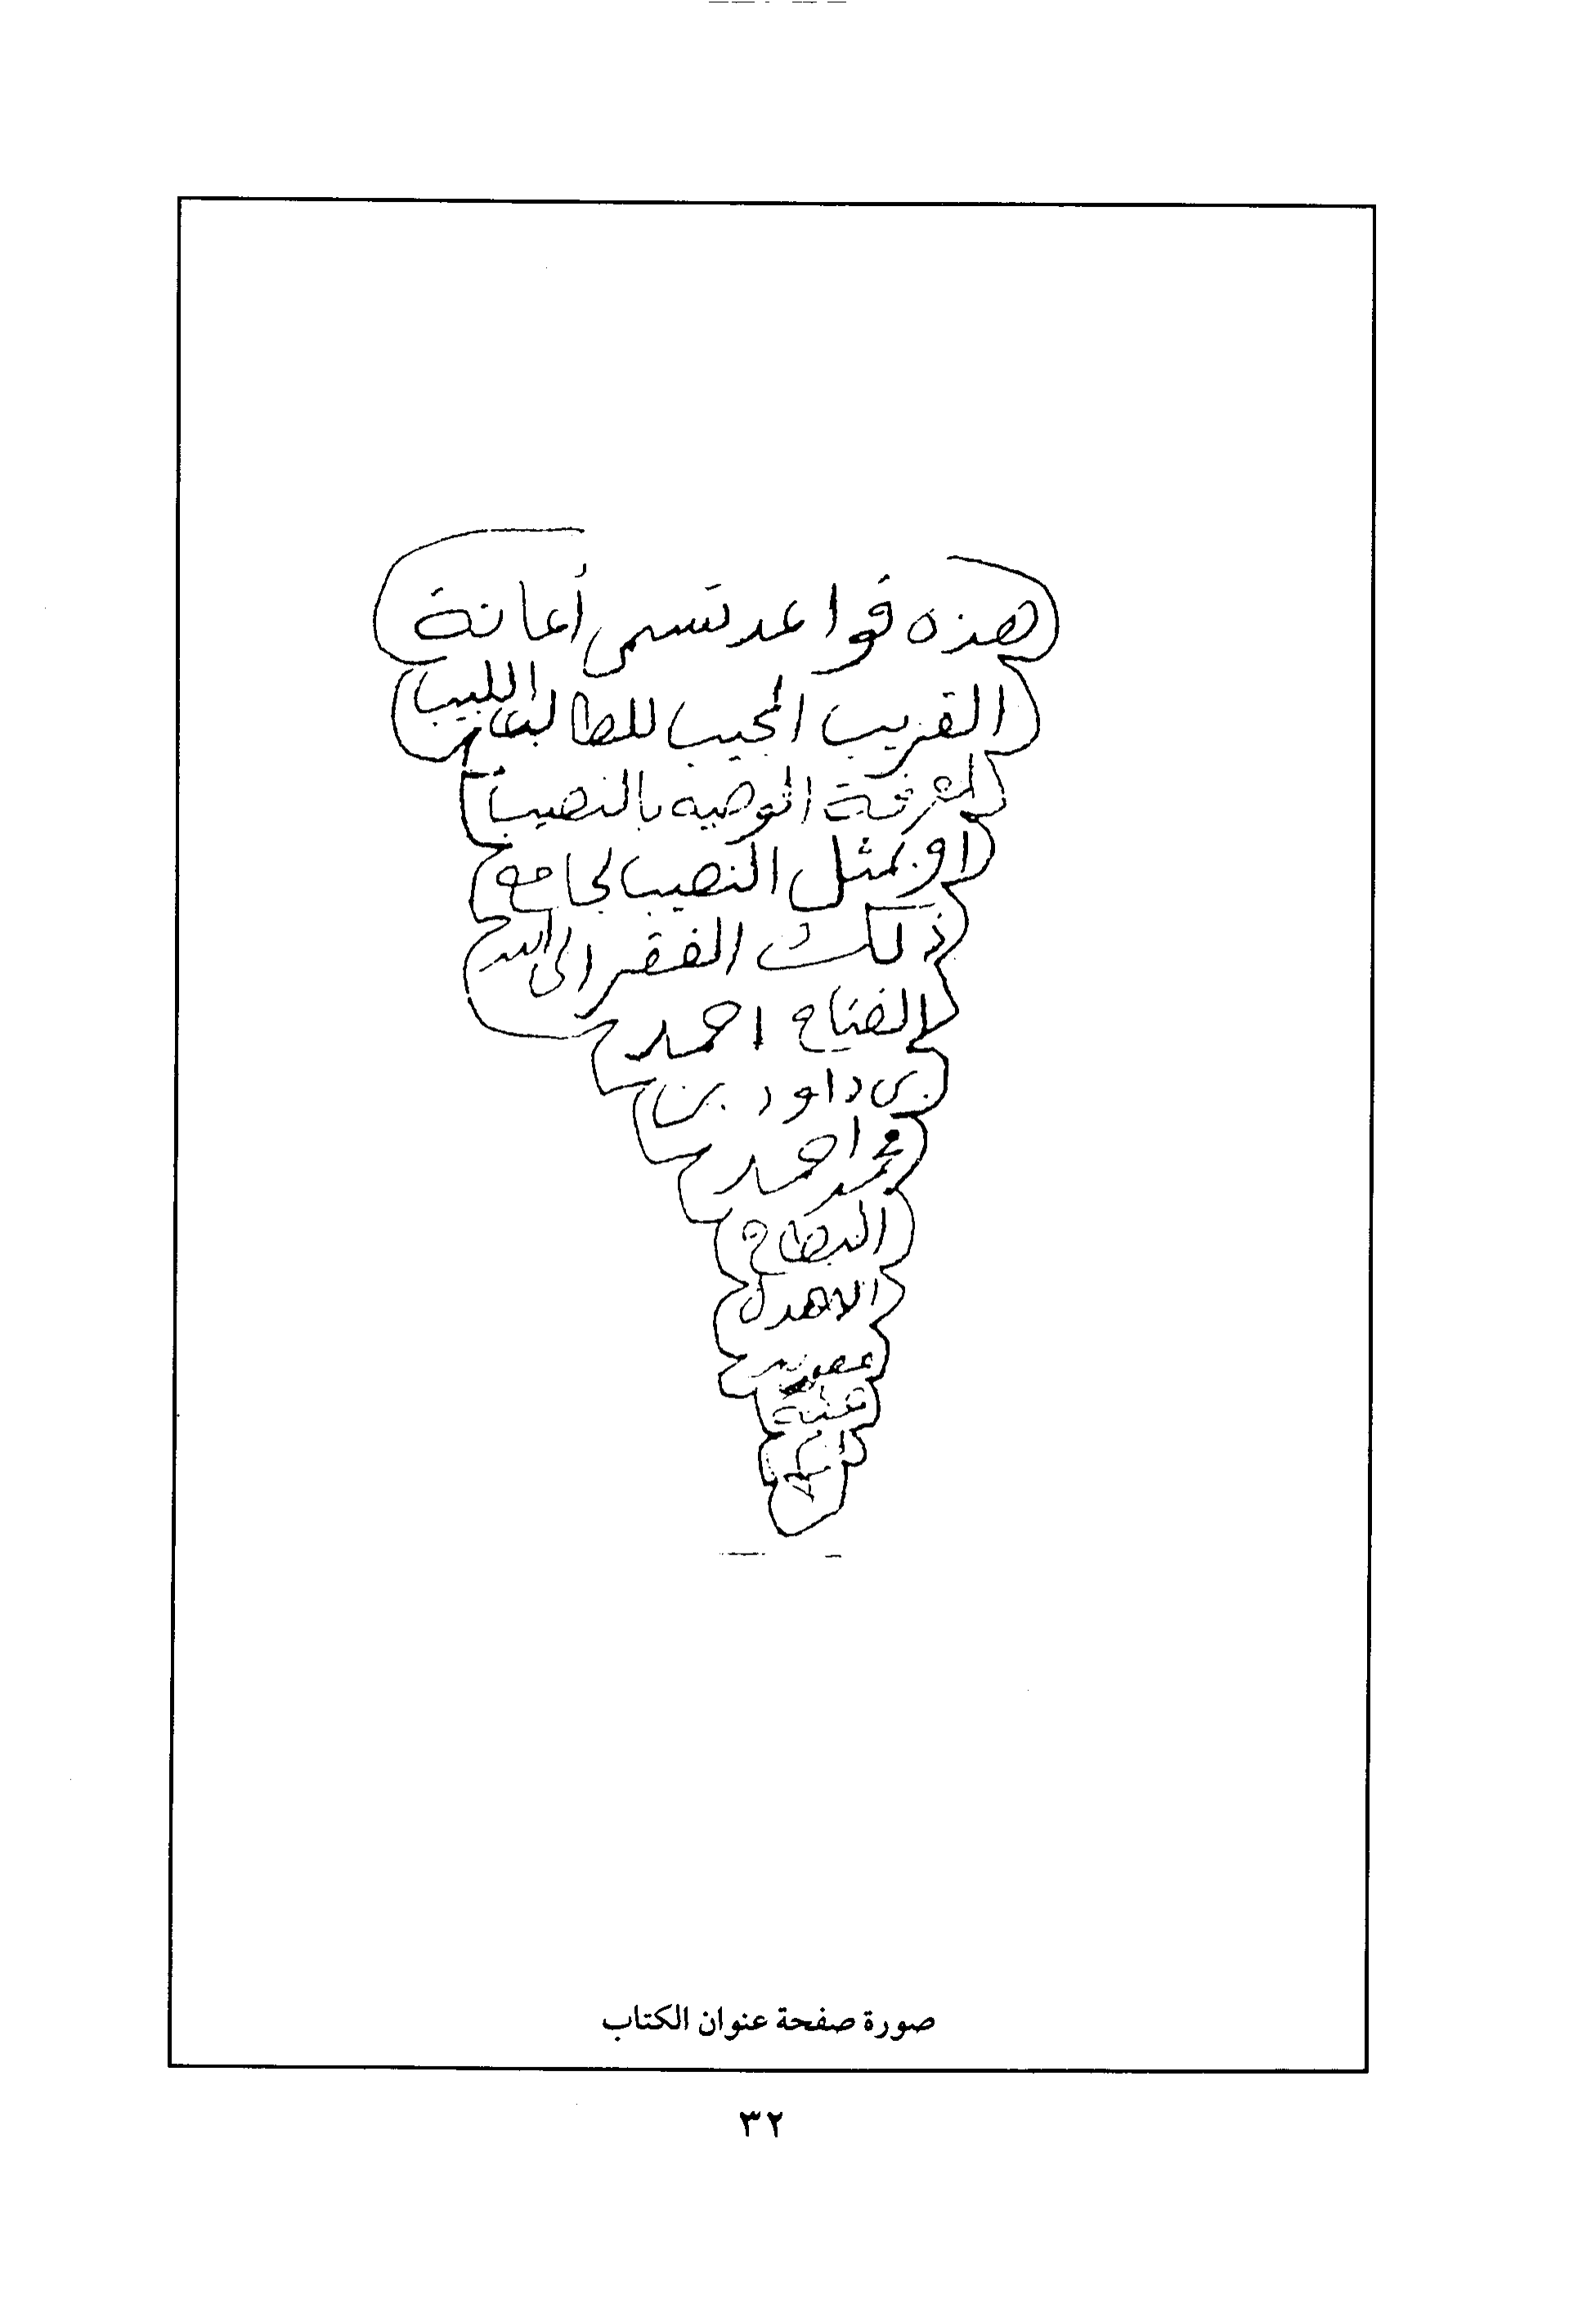 هذه قواعد تسمى أعانة
القريب المجيب للطالب اللبيب
لمعرفة الوصيه بالنصيب
او بمثل النصيب لجامع
ذلك الفقير الى الله
الفتاح احمد
بن داود بن
محمد احمد
البطاح
الاهدل
صورة صفحة عنوان الكتاب
٣٢